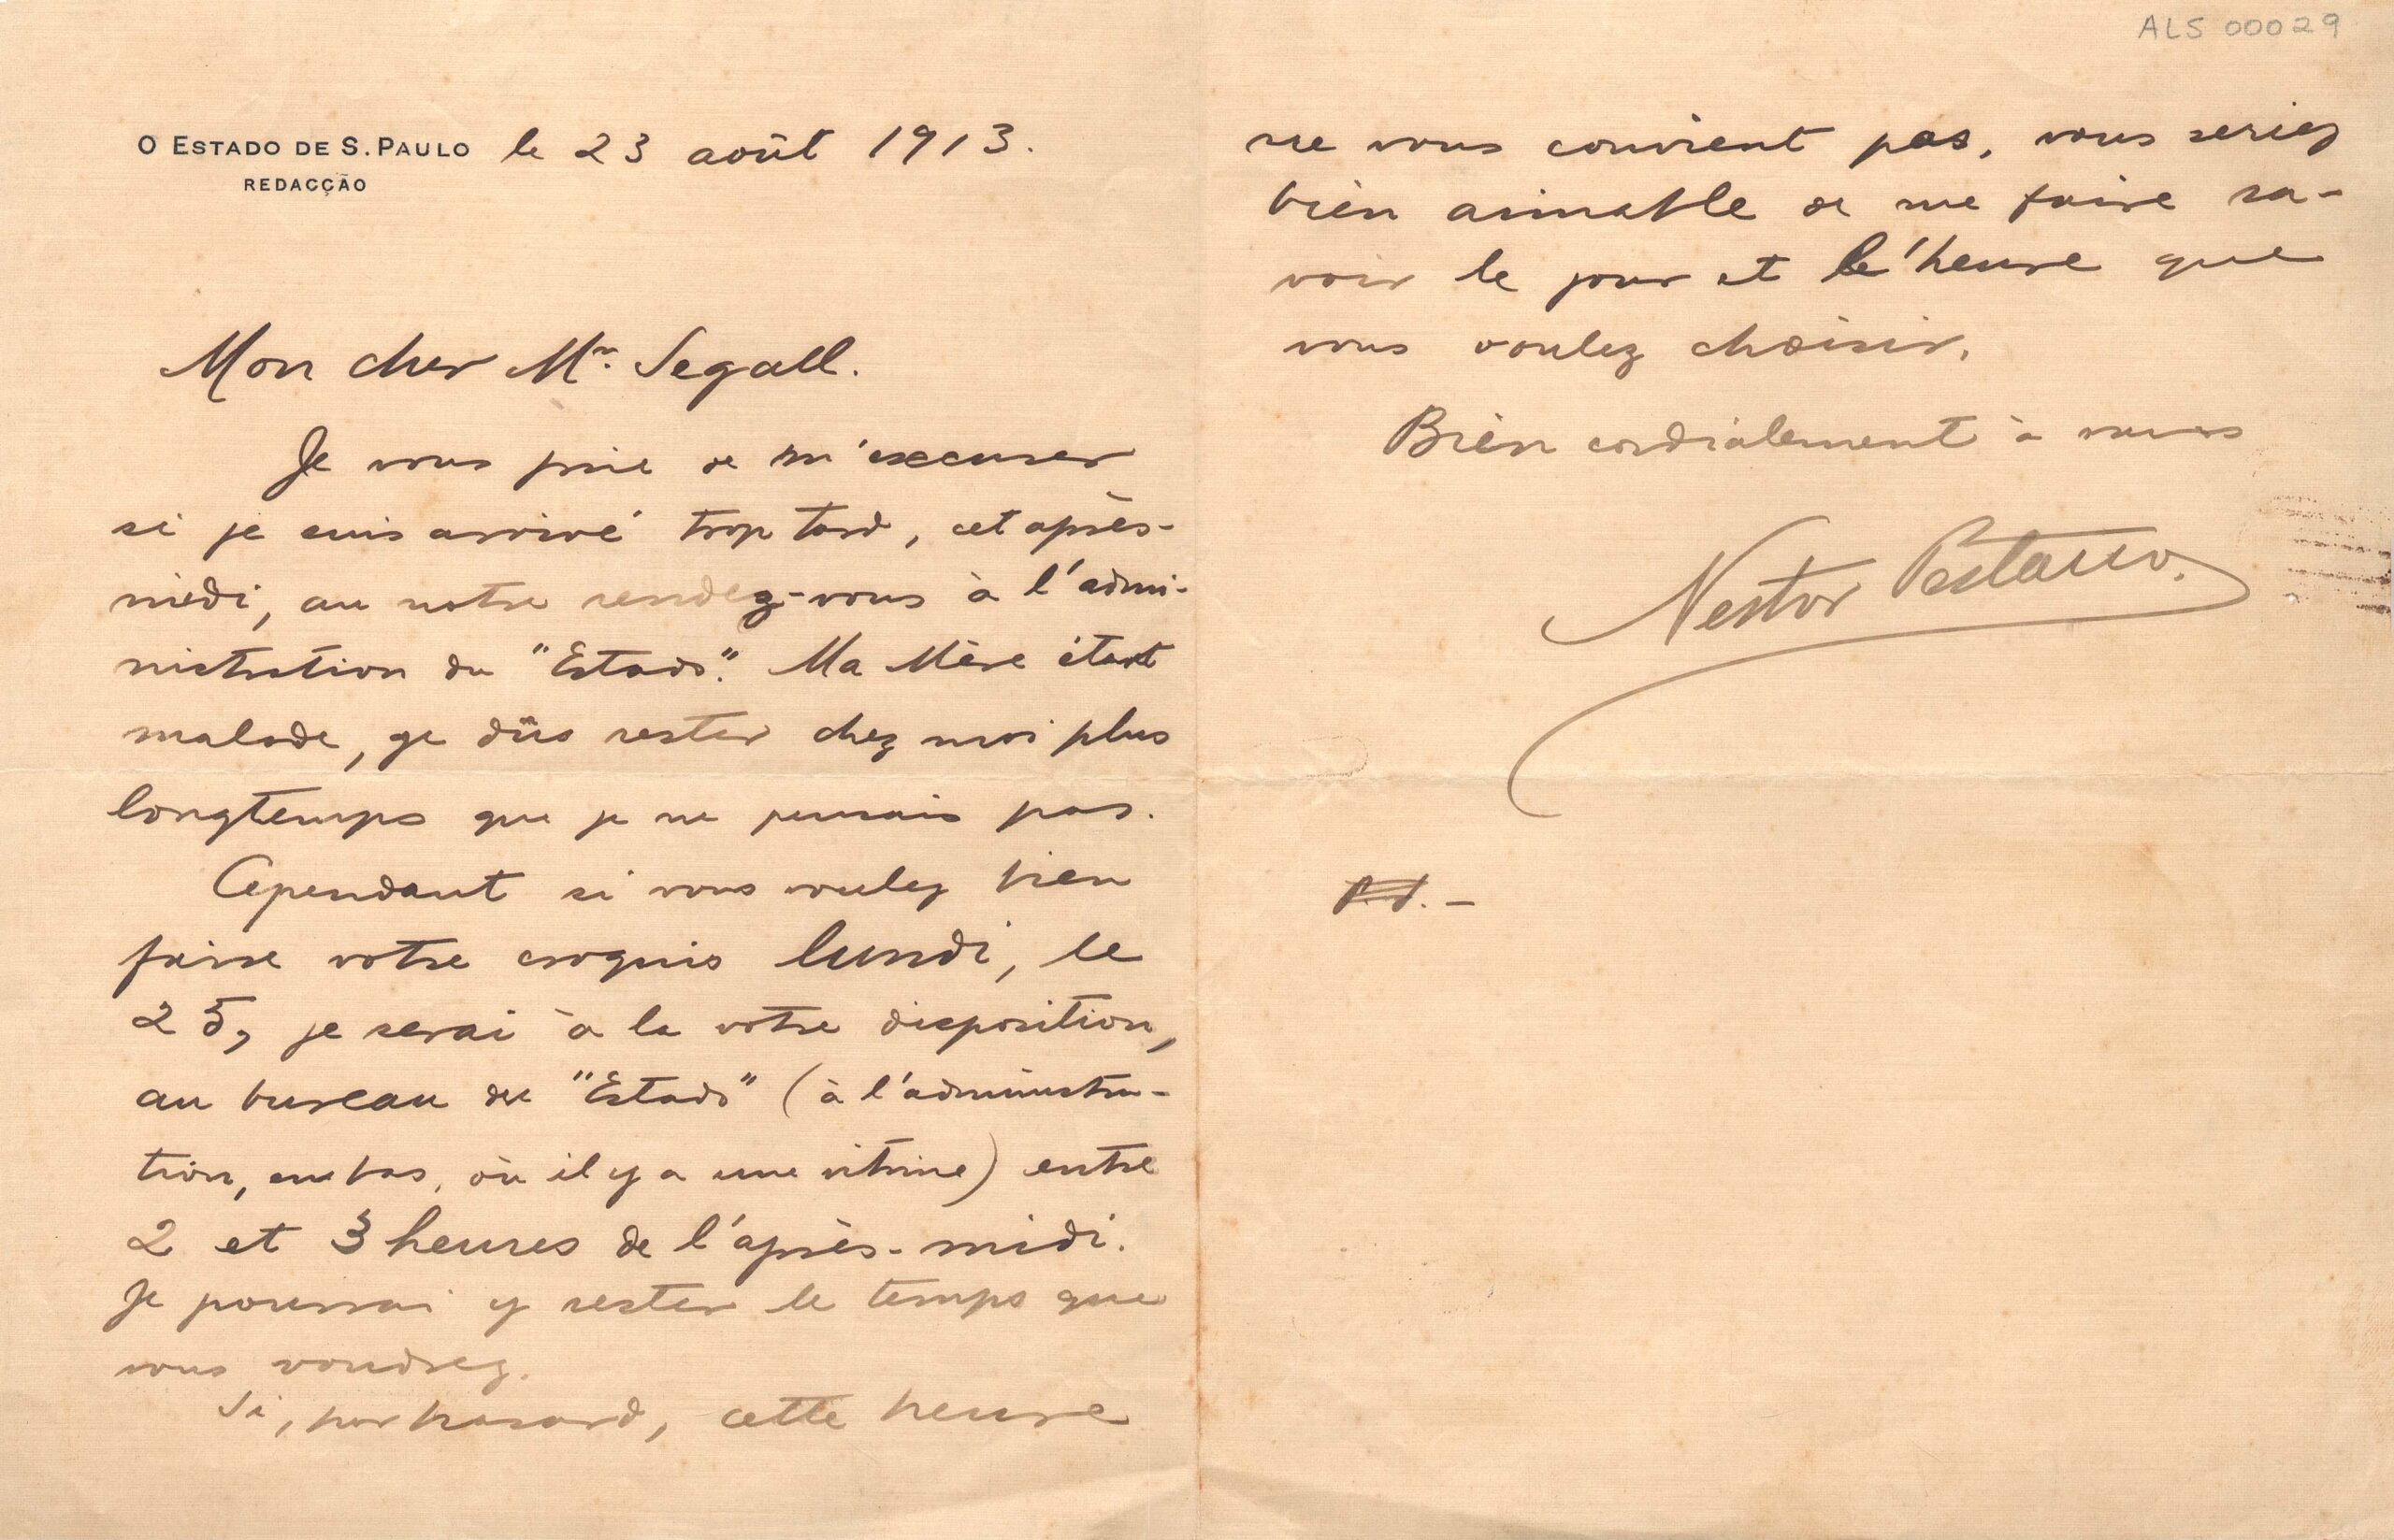 ALS 00029
O ESTADO DE S. PAULO le 23 août 1913.
REDACÇÃO
Mon cher Mr. Segall.
Je vous prie de m'excuser
si je suis arrivé trop tard, cet après-
midi, au notre rendez-vous à l'admi-
nistration du "Estado". Ma Mère étant
malade, je dûs rester chez moi plus
longtemps que je ne pensais pas.
Cependant si vous voulez bien
faire votre croquis lundi, le
25, je serai à la votre disposition,
au bureau du "Estado" (à l'administra-
tion, en bas, où il y a une vitrine) entre
2 et 3 heures de l'après-midi.
Je pourrai y rester le temps que
vous voudrez.
Si, par hasard, cette heure
ne vous convient pas, vous seriez
bien aimable de me faire sa-
voir le jour et l'heure que
vous voulez choisir.
Bien cordialement à vous
Nestor Pestana.
P.S. -